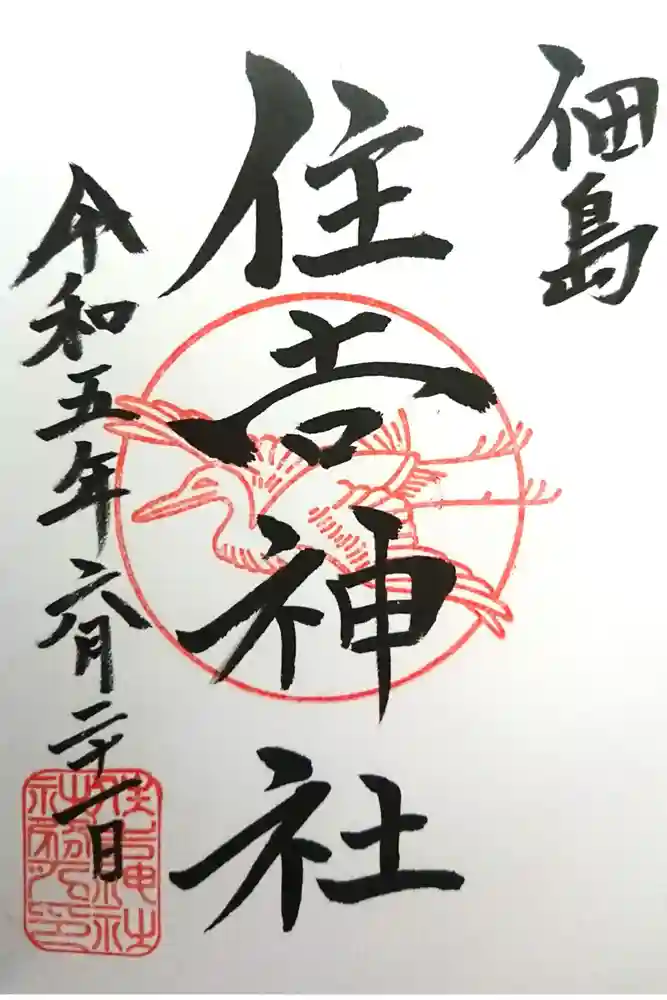 佃島
住吉神社
令和五年六月二十一日
住吉神社
社務所印